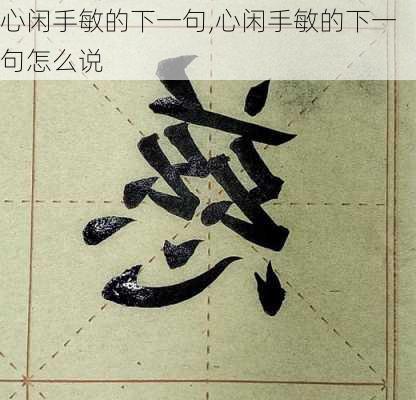 心闲手敏的下一句,心闲手敏的下一
句怎么说